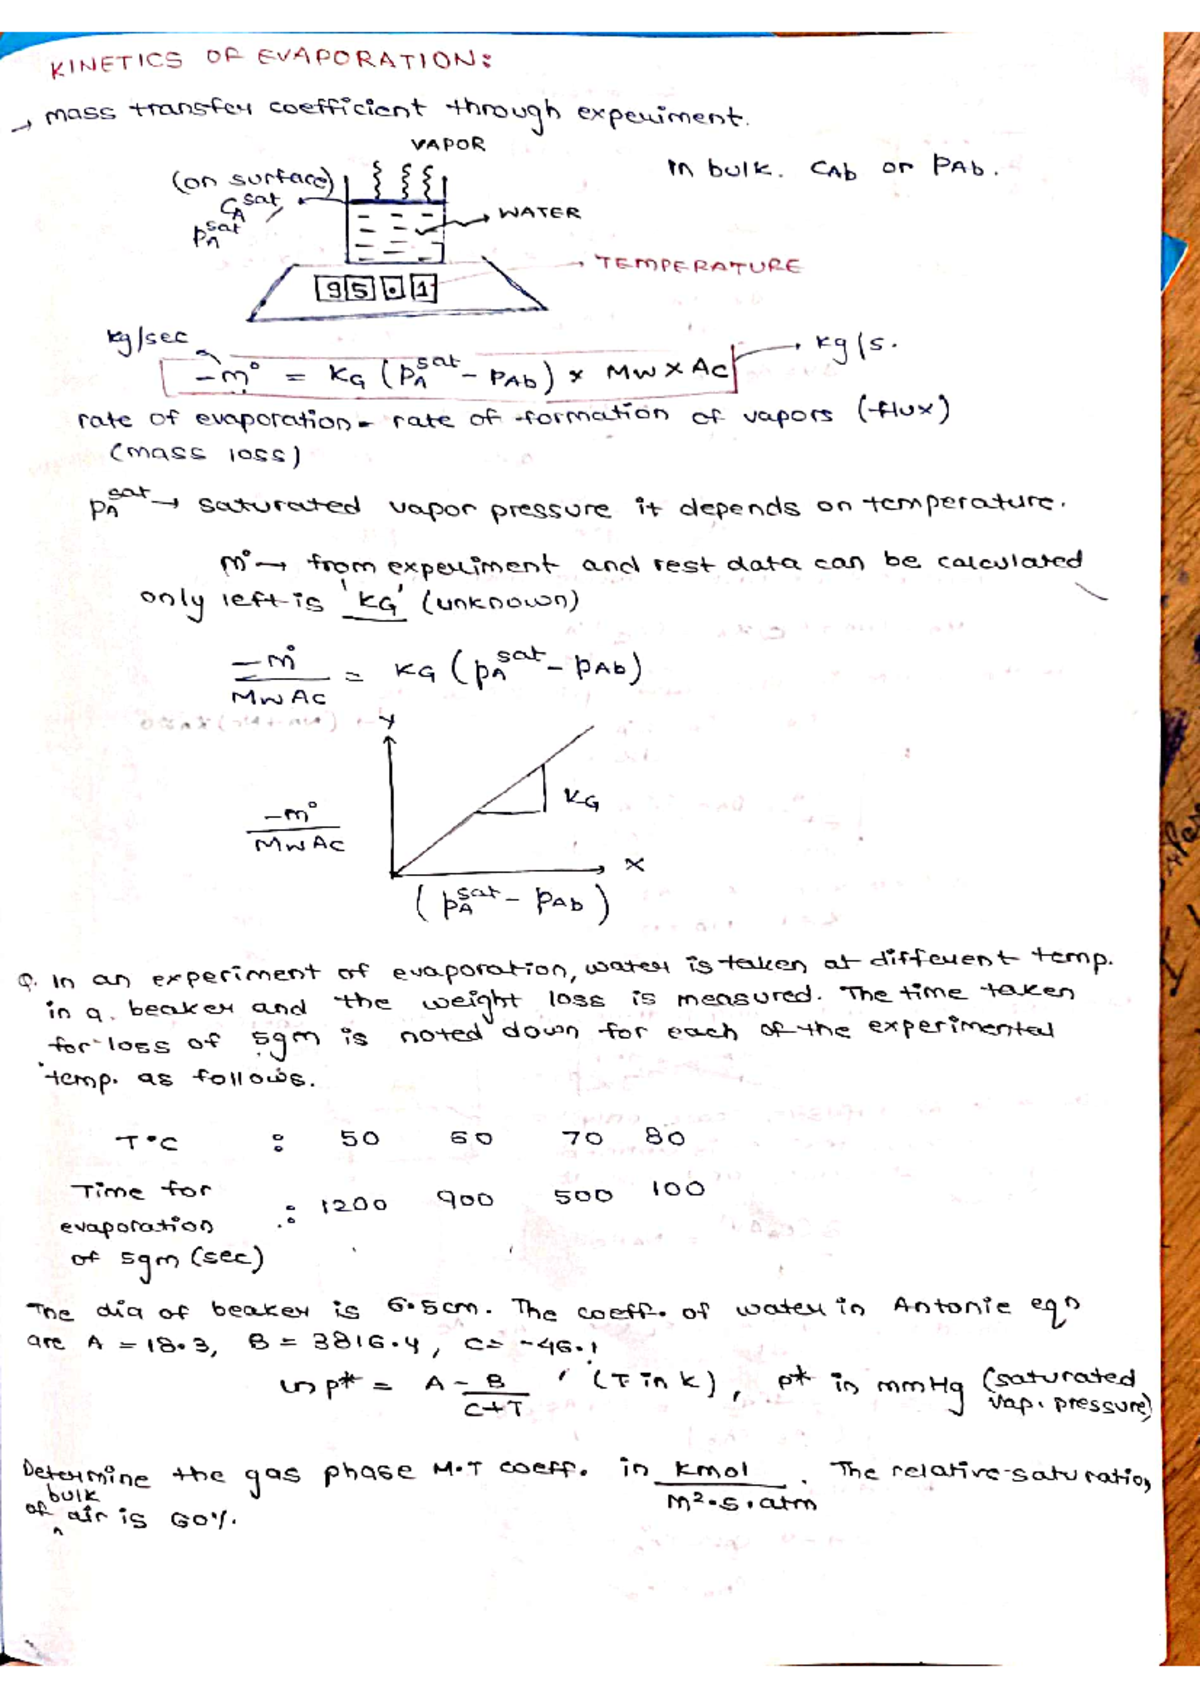 KINETICS OF EVAPORATION:
→ mass transfer coefficient through experiment.
VAPOR
(on surface)
In bulk. CAb or PAb.
CA^sat
PA^sat
WATER
TEMPERATURE
95.1
kg/sec
kg/s.
-m° = KG (PA^sat - PAb) × MW × AC
rate of evaporation = rate of formation of vapors (flux)
(mass loss)
PA^sat → saturated vapor pressure it depends on temperature.
m° → from experiment and rest data can be calculated
only left is 'KG' (unknown)
-m° / MW AC = KG (PA^sat - PAb)
Y
KG
-m° / MW AC
X
(PA^sat - PAb)
Q. In an experiment of evaporation, water is taken at different temp.
in a. beaker and the weight loss is measured. The time taken
for loss of 5gm is noted down for each of the experimental
temp. as follows.
T°C : 50 60 70 80
Time for
evaporation : 1200 900 500 100
of 5gm (sec)
The dia of beaker is 6.5cm. The coeff. of water in Antonie eqn
are A = 18.3, B = 3816.4, C = -46.1
ln p* = A - B / C+T , (T in K), p* in mmHg (saturated
vap. pressure)
Determine the gas phase M.T coeff. in kmol / m².s.atm . The relative saturation
of bulk air is 60%.